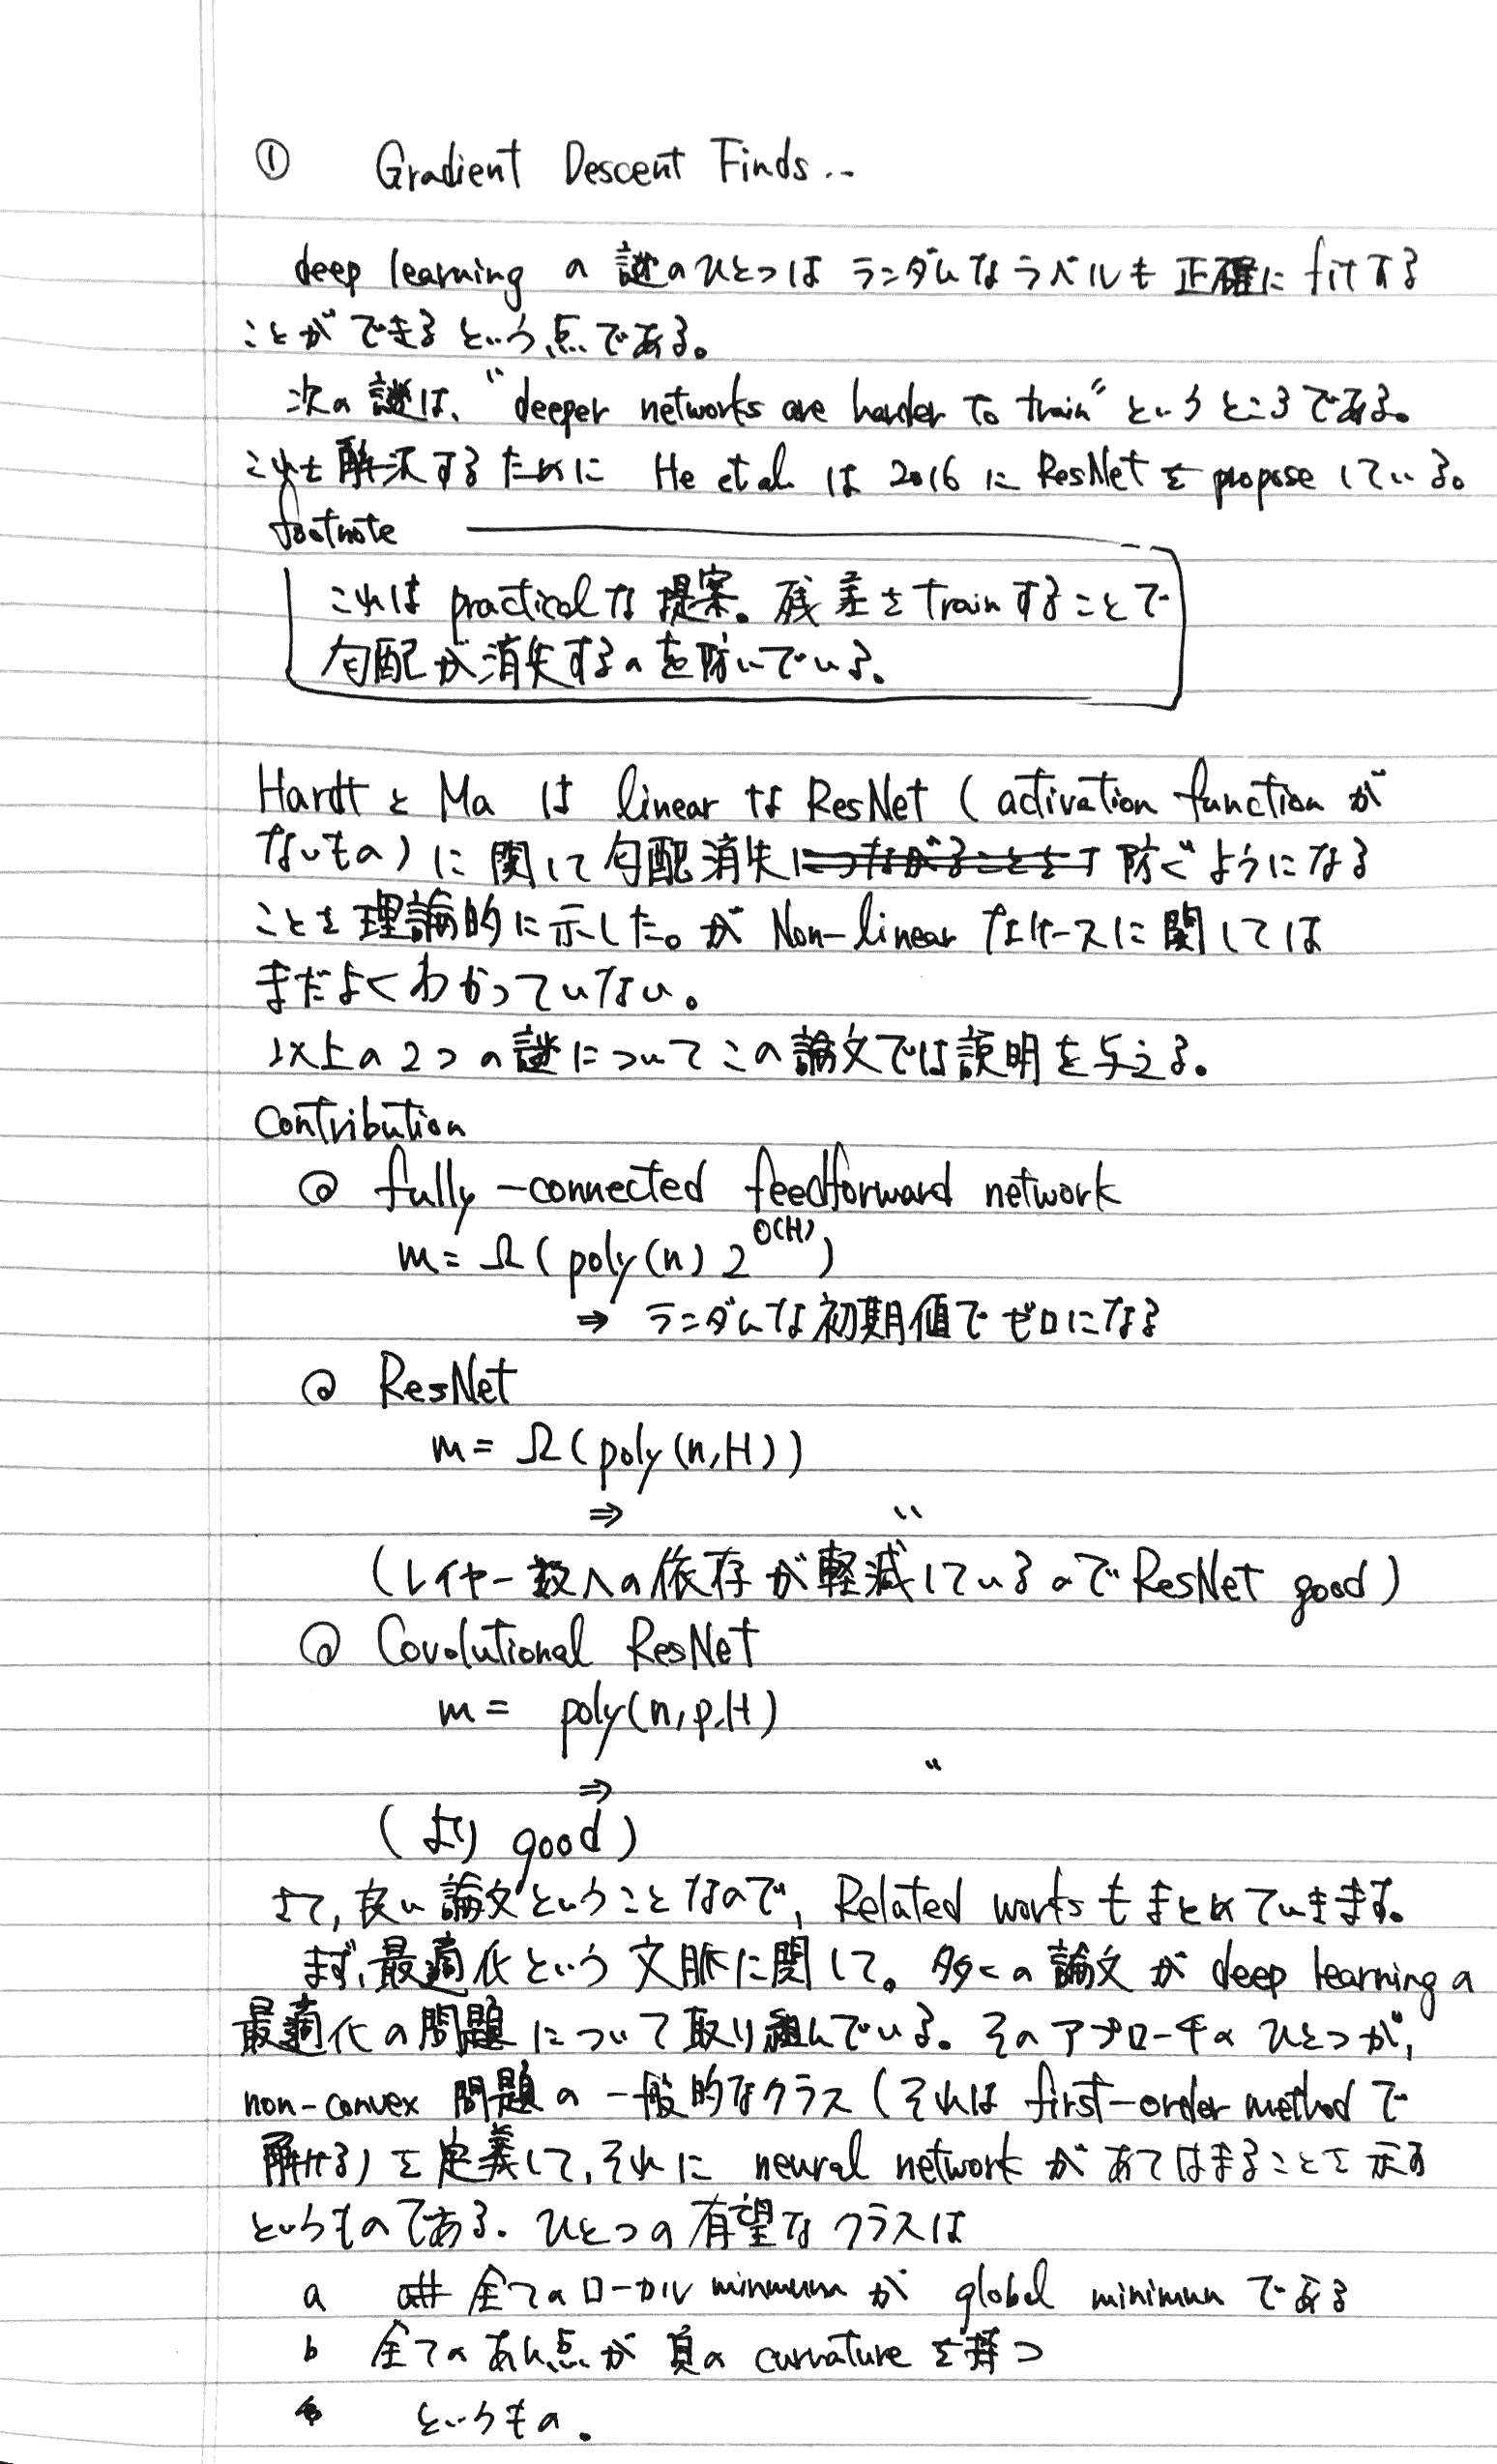 ① Gradient Descent Finds..
deep learning の 謎のひとつは ランダムなラベルも 正確に fitする
ことができるという点である。
次の謎は、"deeper networks are harder to train" というところである。
これを解決するために He et al. は 2016 に ResNet を propose している。
footnote
これは practical な 提案。残差を train することで
勾配が消失するのを防いでいる。
Hardt と Ma は linear な ResNet (activation function が
ないもの) に関して勾配消失につながることを 防ぐようになる
ことを理論的に示した。が Non-linear なケースに関しては
まだよくわかっていない。
以上の2つの謎についてこの論文では説明を与える。
Contribution
@ fully-connected feedforward network
m = Ω(poly(n) 2^O(H))
⇒ ランダムな初期値でゼロになる
@ ResNet
m = Ω(poly(n,H))
⇒ 〃
(レイヤー数への依存が軽減しているのでResNet good)
@ Covolutional ResNet
m = poly(n,p,H)
⇒ 〃
(より good)
さて, 良い論文ということなので, Related works もまとめていきます。
まず、最適化という文脈に関して。多くの論文が deep learning の
最適化の問題について取り組んでいる。そのアプローチのひとつが,
non-convex 問題の一般的なクラス(それは first-order method で
解ける)を定義して, それに neural network があてはまることを示す
というものである. ひとつの有望なクラスは
a 全てのローカル minmum が global minimun である
b 全てのあん点が 負の curvature を持つ
というもの.